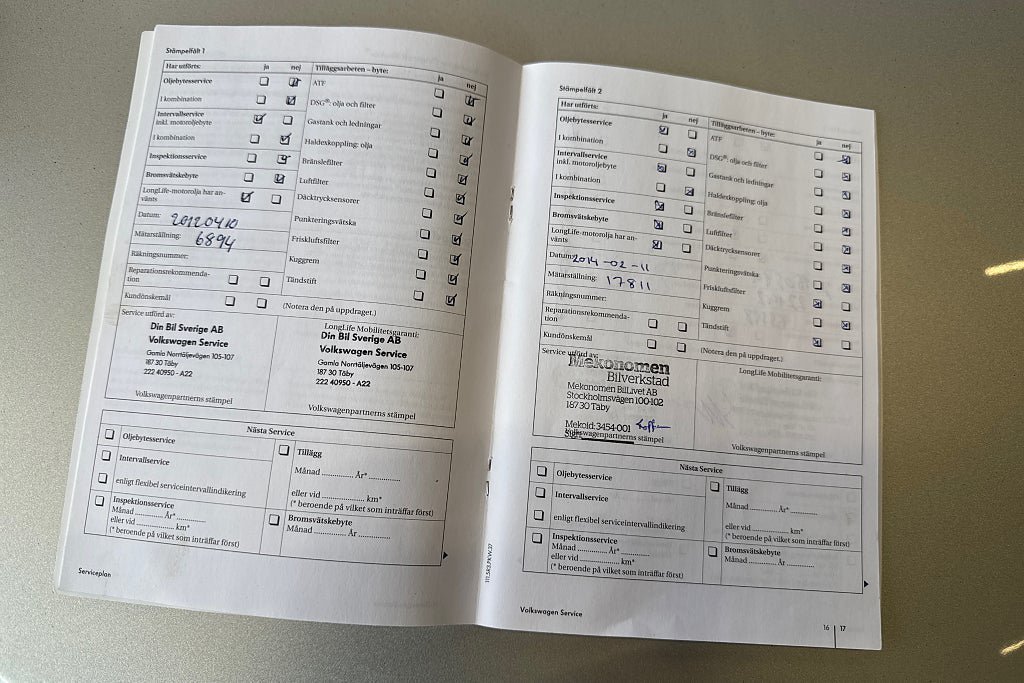 Stämpelfält 1
Har utförts: ja nej
Oljebytesservice
I kombination
Intervallservice
inkl. motoroljebyte
I kombination
Inspektionsservice
Bromsvätskebyte
LongLife-motorolja har an-
vänts
Datum: 20120410
Mätarställning: 6894
Räkningsnummer:
Reparationsrekommenda-
tion
Kundönskemål
Tilläggsarbeten – byte: ja nej
ATF
DSG®: olja och filter
Gastank och ledningar
Haldexkoppling: olja
Bränslefilter
Luftfilter
Däcktrycksensorer
Punkteringsvätska
Friskluftsfilter
Kuggrem
Tändstift
(Notera den på uppdraget.)
Service utförd av:
Din Bil Sverige AB
Volkswagen Service
Gamla Norrtäljevägen 105-107
187 30 Täby
222 40950 - A22
Volkswagenpartnerns stämpel
LongLife Mobilitetsgaranti:
Din Bil Sverige AB
Volkswagen Service
Gamla Norrtäljevägen 105-107
187 30 Täby
222 40950 - A22
Volkswagenpartnerns stämpel
Nästa Service
Oljebytesservice
Intervallservice
enligt flexibel serviceintervallindikering
Inspektionsservice
Månad .............. År* ............
eller vid ................ km*
(* beroende på vilket som inträffar först)
Tillägg
Månad ............. År* .............
eller vid ................. km*
(* beroende på vilket som inträffar först)
Bromsvätskebyte
Månad ............. År ............
Serviceplan
111.5R3.PKW.37
Stämpelfält 2
Har utförts: ja nej
Oljebytesservice
I kombination
Intervallservice
inkl. motoroljebyte
I kombination
Inspektionsservice
Bromsvätskebyte
LongLife-motorolja har an-
vänts
Datum: 2014-02-11
Mätarställning: 17811
Räkningsnummer:
Reparationsrekommenda-
tion
Kundönskemål
Tilläggsarbeten – byte: ja nej
ATF
DSG®: olja och filter
Gastank och ledningar
Haldexkoppling: olja
Bränslefilter
Luftfilter
Däcktrycksensorer
Punkteringsvätska
Friskluftsfilter
Kuggrem
Tändstift
(Notera den på uppdraget.)
Service utförd av:
Mekonomen
Bilverkstad
Mekonomen BilLivet AB
Stockholmsvägen 100-102
187 30 Täby
Mekoid: 3454-001
Sign:
Volkswagenpartnerns stämpel
LongLife Mobilitetsgaranti:
Volkswagenpartnerns stämpel
Nästa Service
Oljebytesservice
Intervallservice
enligt flexibel serviceintervallindikering
Inspektionsservice
Månad .............. År* ............
eller vid ................ km*
(* beroende på vilket som inträffar först)
Tillägg
Månad ............. År* .............
eller vid ................. km*
(* beroende på vilket som inträffar först)
Bromsvätskebyte
Månad ............. År ............
Volkswagen Service
16 17